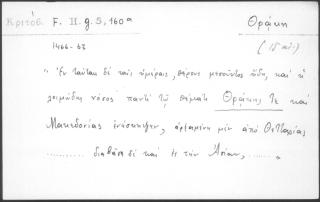 Κριτόβ. F. II. g 5, 160ª Θράκη
1466-67 (15 αἰ.)
" Ἐν ταύταις δὲ ταῖς ἡμέραις, θέρους μεσοῦντος ἤδη, καὶ ἡ
λοιμώδης νόσος παντὶ τῷ θέματι Θρᾴκης τε καὶ
Μακεδονίας ἐνέσκηψεν, ἀρξαμένη μὲν ἀπὸ Θετταλίας
......... διαβᾶσα δὲ καὶ ἐς τὴν Ἀσίαν, ......... "